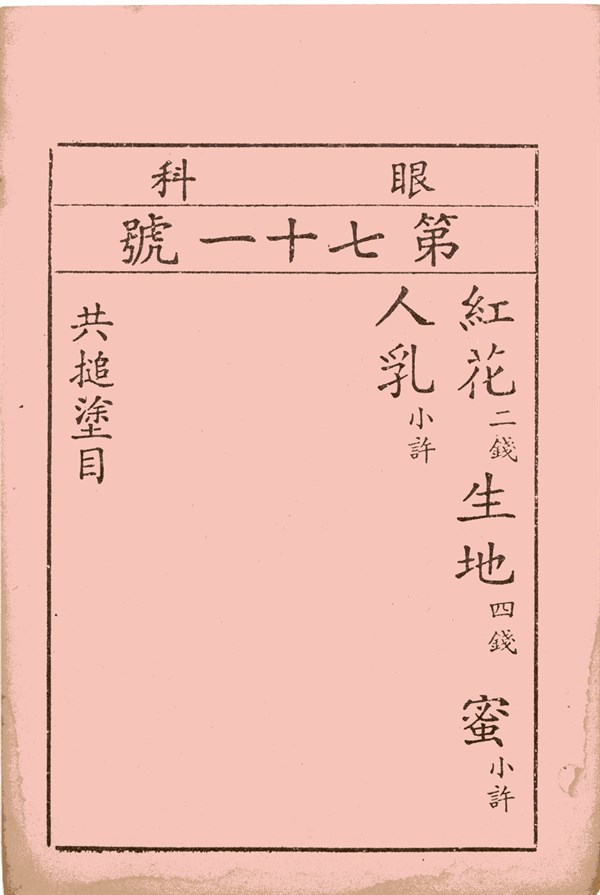 眼科
第七十一號
紅花二錢生地四錢蜜小許
人乳小許
共搥塗目